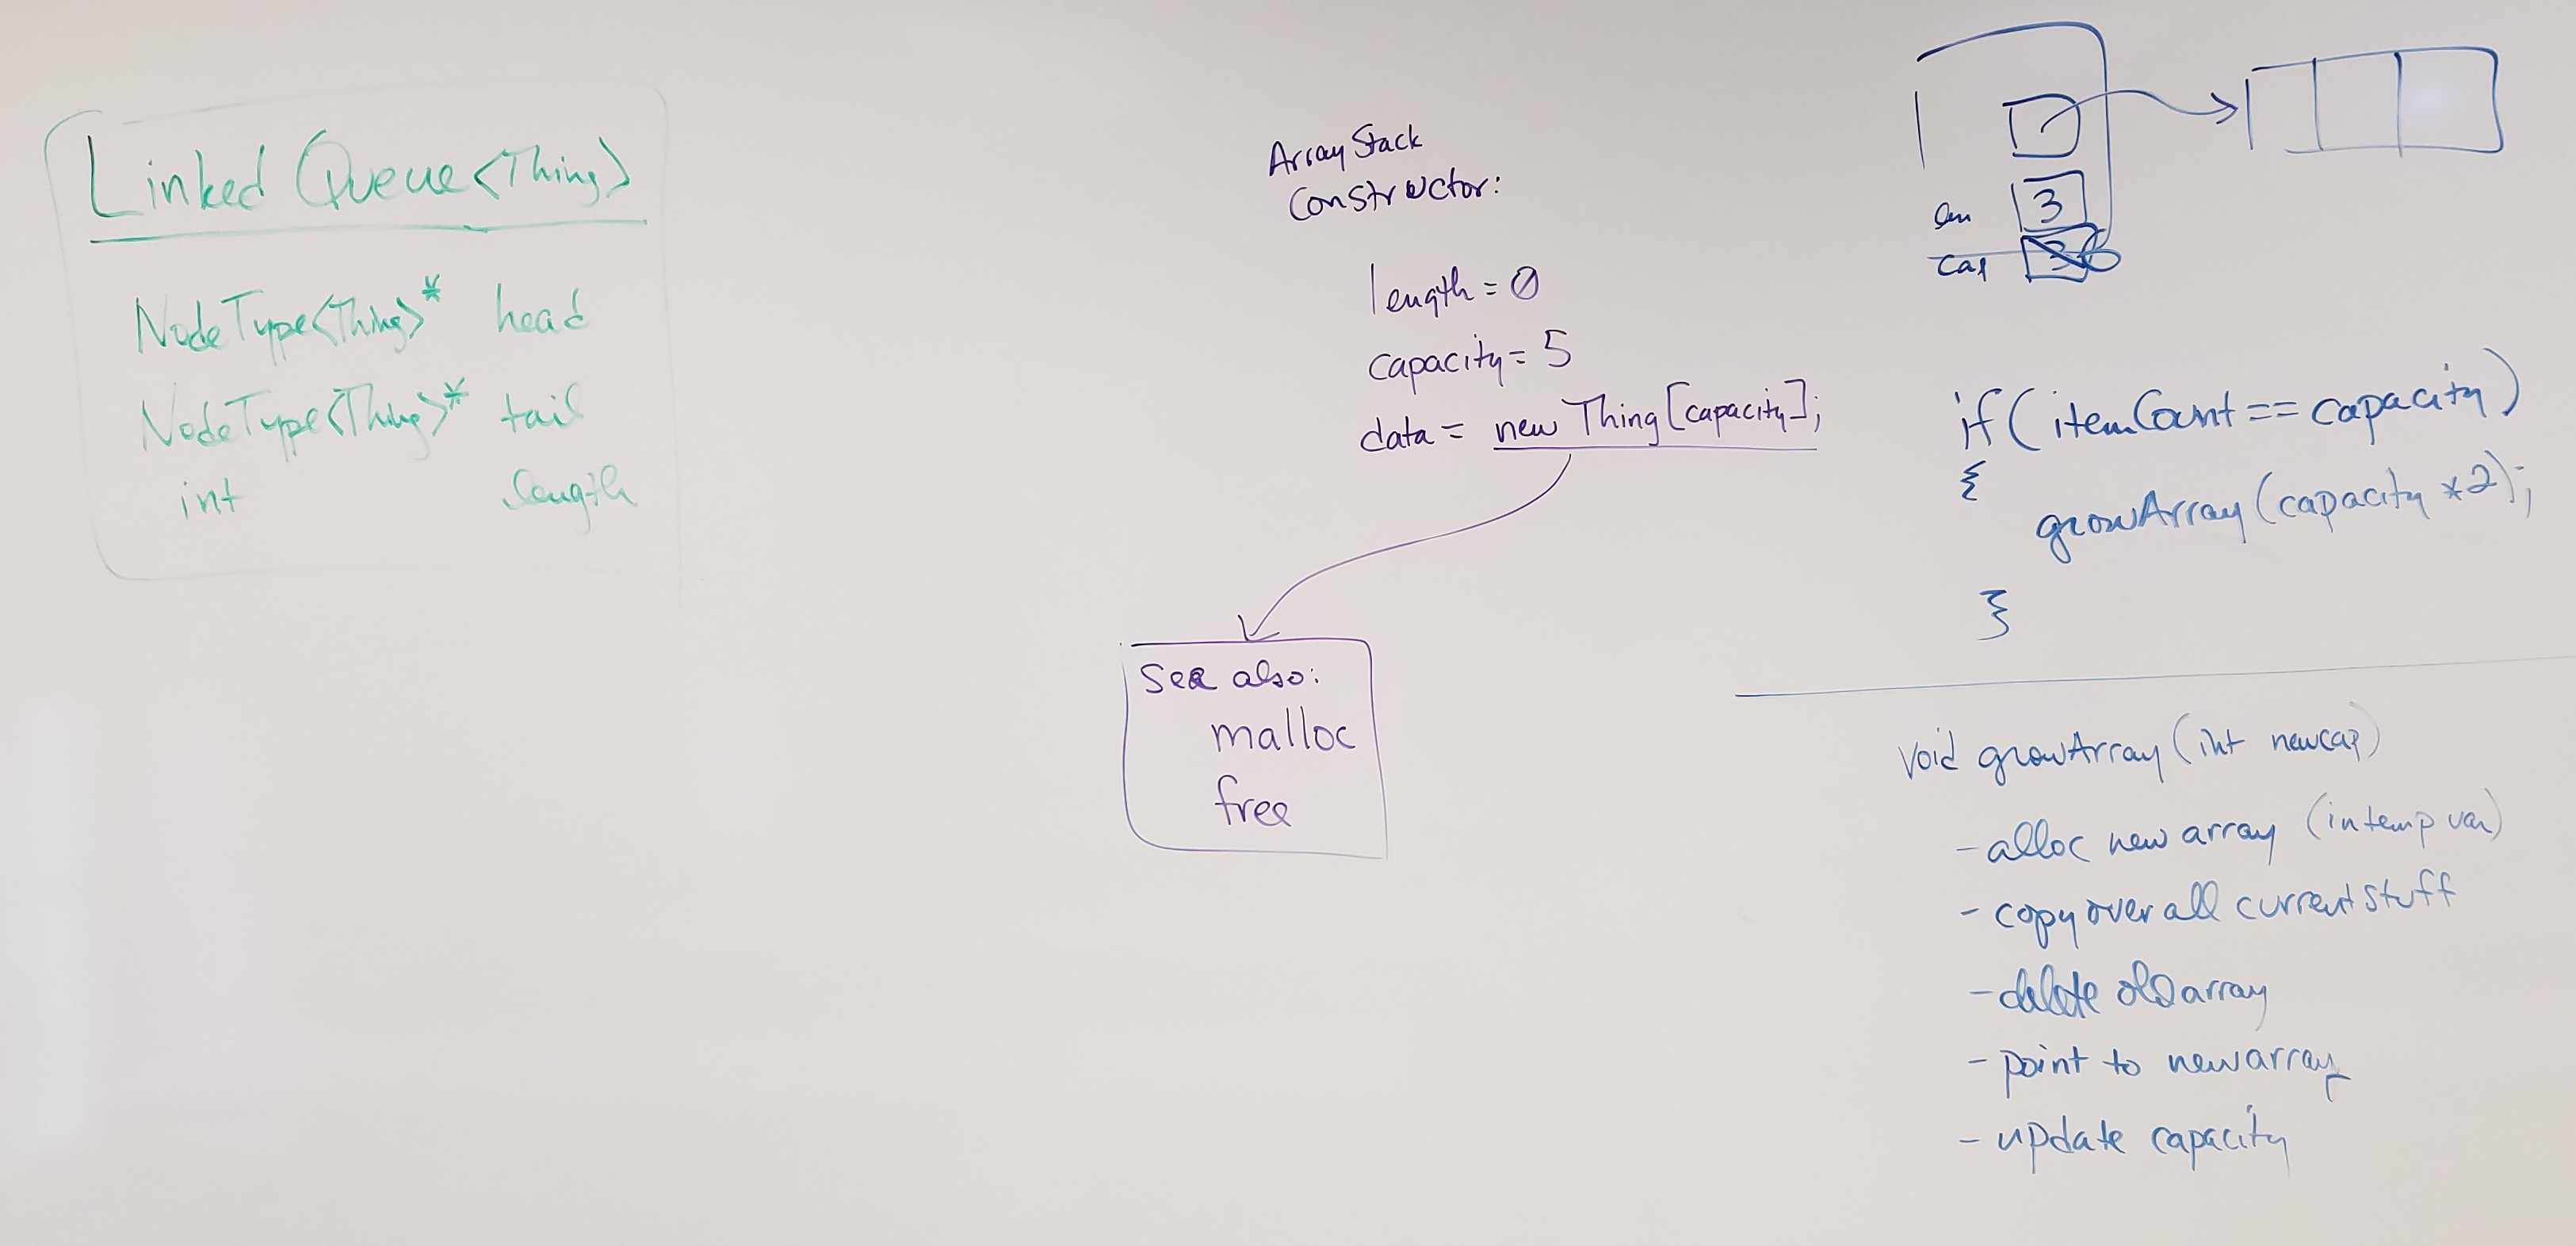 Linked Queue<Thing>
NodeType<Thing>* head
NodeType<Thing>* tail
int length
ArrayStack
Constructor:
length = 0
capacity = 5
data = new Thing[capacity];
See also:
malloc
free
3
cap
if (itemCount == capacity)
{
growArray(capacity *2);
}
void growArray(int newcap)
- alloc new array (in temp var)
- copy over all current stuff
- delete old array
- point to new array
- update capacity